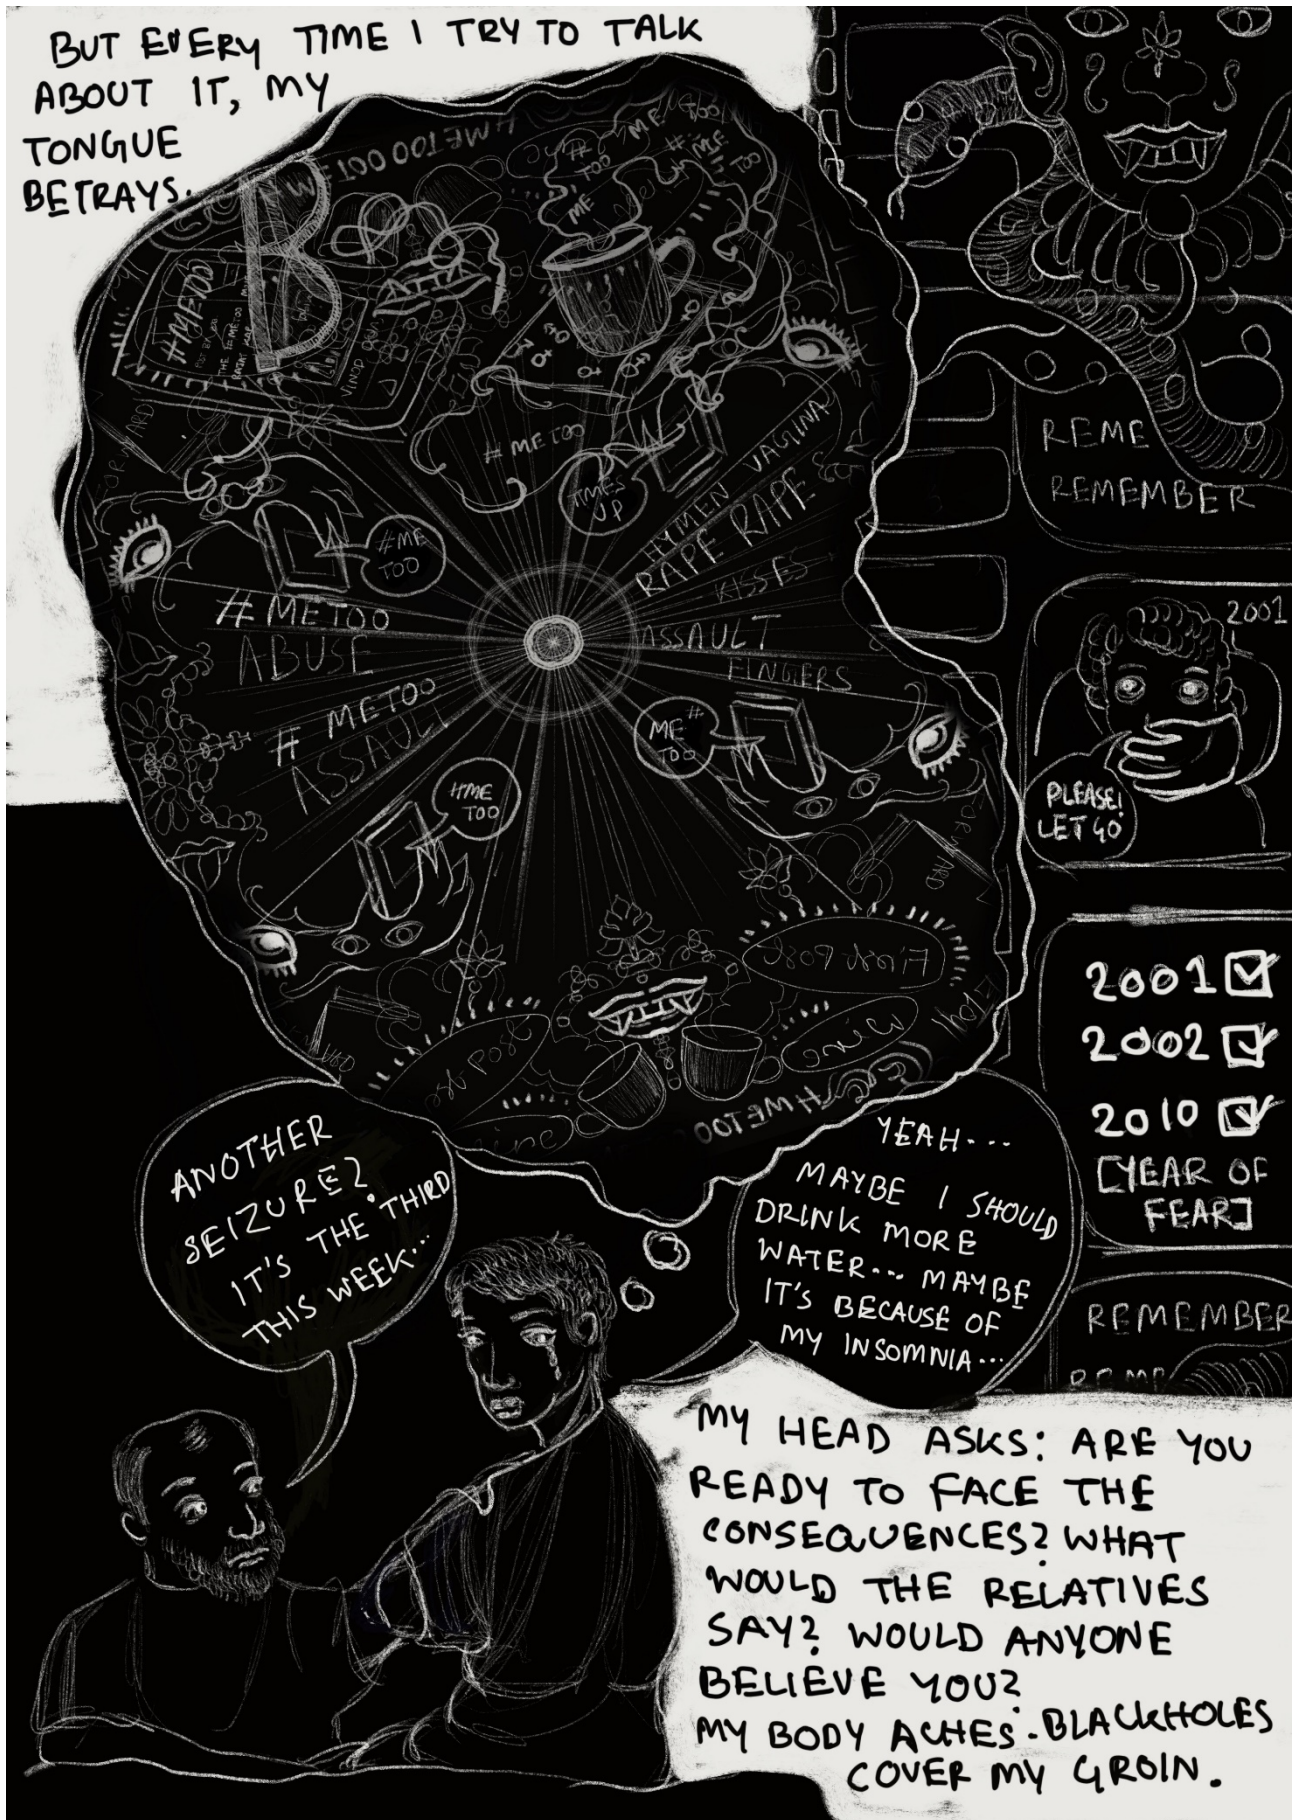 BUT EVERY TIME I TRY TO TALK
ABOUT IT, MY
TONGUE
BETRAYS.
#METOO
#METOO
ME
TOO
#
TOO
ME
#METOO
B
THE #METOO
VINOD DUA
# METOO
TIMES
UP
HYMEN VAGINA
RAPE RAPE
KISSES
ASSAULT
FINGERS
#ME
TOO
# METOO
ABUSE
# METOO
ASSAULT
ME #
TOO
#ME
TOO
First Post
#METOO
REME
REMEMBER
2001
PLEASE!
LET GO
2001
2002
2010
[YEAR OF
FEAR]
REMEMBER
REME
ANOTHER
SEIZURE?
IT'S THE THIRD
THIS WEEK...
YEAH...
MAYBE I SHOULD
DRINK MORE
WATER... MAYBE
IT'S BECAUSE OF
MY INSOMNIA...
MY HEAD ASKS: ARE YOU
READY TO FACE THE
CONSEQUENCES? WHAT
WOULD THE RELATIVES
SAY? WOULD ANYONE
BELIEVE YOU?
MY BODY ACHES. BLACKHOLES
COVER MY GROIN.